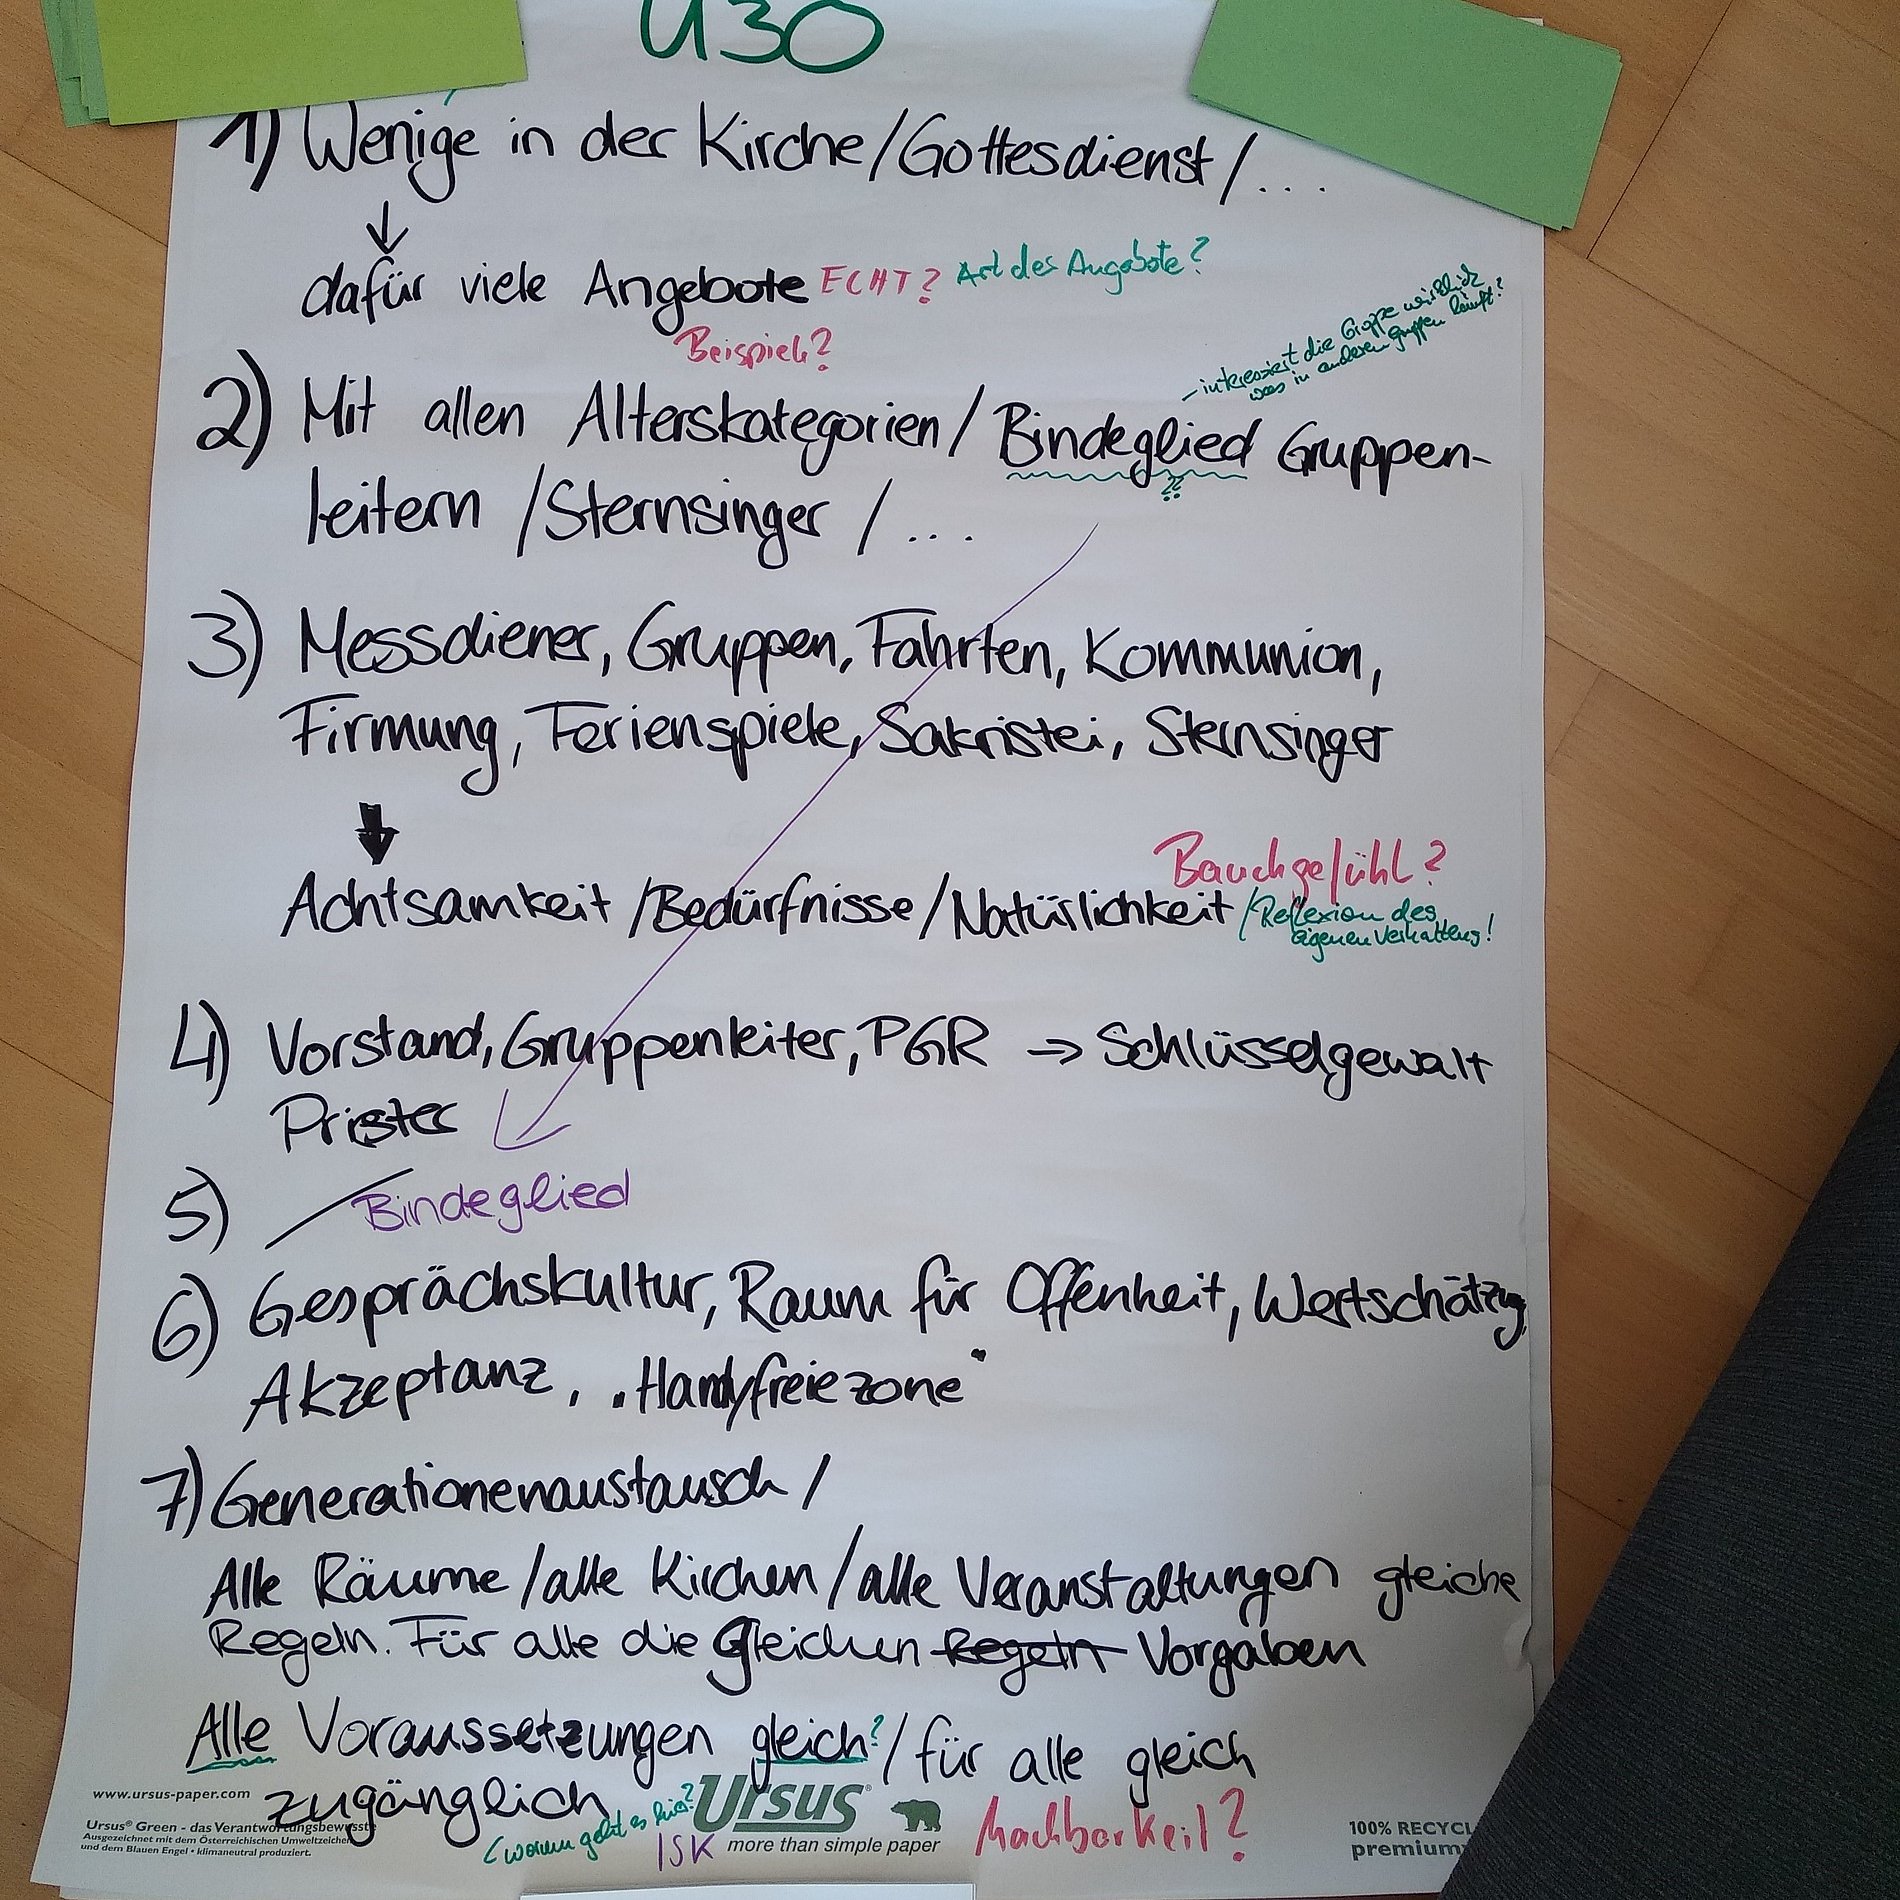 Ü30
1) Wenige in der Kirche/Gottesdienst/...
↓
dafür viele Angebote ECHT? Art der Angebote?
Beispiele?
– interessiert die Gruppe wirklich
was in anderen Gruppen läuft?
2) Mit allen Alterskategorien/Bindeglied Gruppen-
??
leitern /Sternsinger /...
3) Messdiener, Gruppen, Fahrten, Kommunion,
Firmung, Ferienspiele, Sakristei, Sternsinger
Bauchgefühl?
Achtsamkeit /Bedürfnisse/Natürlichkeit/Reflexion des
eigenen Verhaltens!
4) Vorstand, Gruppenleiter, PGR → Schlüsselgewalt
Prister
5) Bindeglied
6) Gesprächskultur, Raum für Offenheit, Wertschätzung,
Akzeptanz, „Handyfreiezone“
7) Generationenaustausch /
Alle Räume /alle Kirchen /alle Veranstaltungen gleiche
Regeln. Für alle die Gleichen Regeln Vorgaben
Alle Voraussetzungen gleich? / für alle gleich
zugänglich
(worum geht es hier?
ISK
Machbarkeit?
www.ursus-paper.com
Ursus® Green - das Verantwortungsbewusste
Ausgezeichnet mit dem Österreichischen Umweltzeichen
und dem Blauen Engel • klimaneutral produziert.
Ursus®
more than simple paper
100% RECYCL
premium